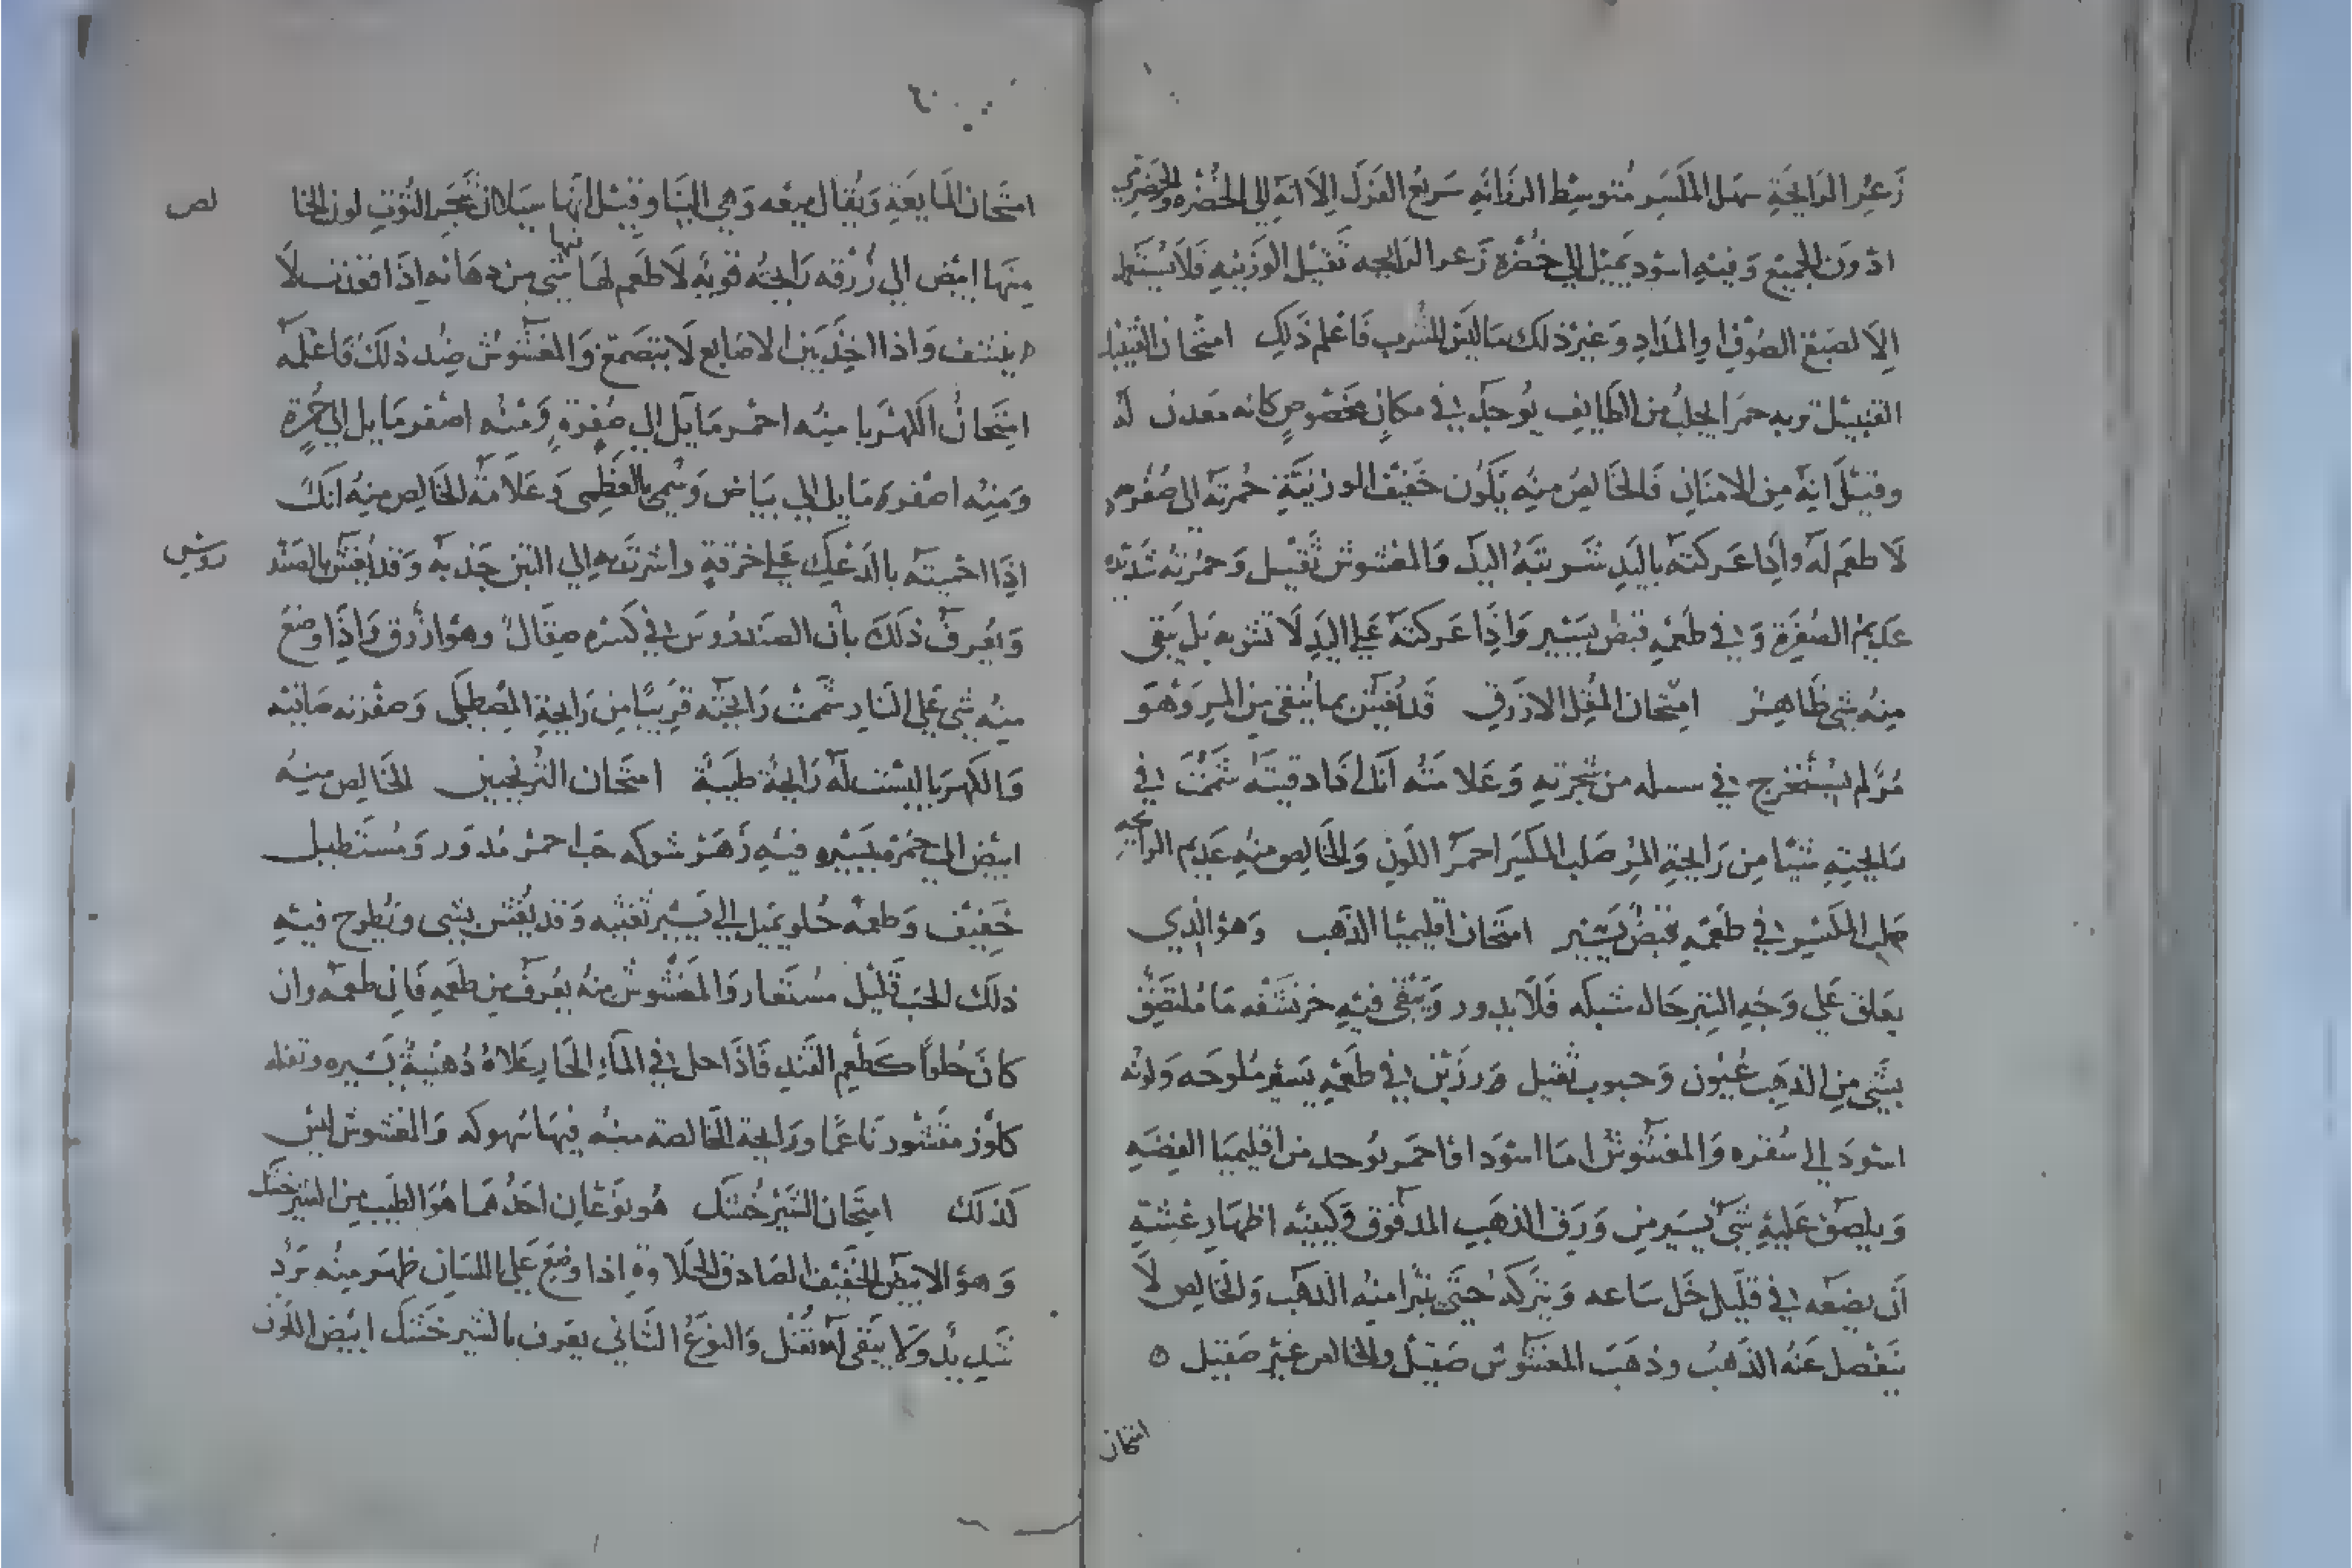 زعر الرايحة سهل المكسر متوسط الرزانه سريع الفرك الا انه الى الخضره والخضري
ادون الجميع وفيه اسود يميل الي خضرة زعر الرايحه ثقيل الوزنيه فلا يستعمل
الا لصبغ الصوف او المداد وغير ذلك ما ليس للشرب فاعلم ذلك امتحان القنبيل
القنبيل تربه حمرا يجلب من الطايف يوجد في مكان مخصوص كانه معدن له
وقيل انه من الامنان فالخالص منه يكون خفيف الوزنية حمرته الى صفره
لا طعم له واذا عركته باليد تشربته اليد والمغشوش ثقيل وحمرته شديده
عديم الصفرة وفي طعمه قبض يسير واذا عركته على اليد لا تشربه بل يبقى
منه شي ظاهر امتحان المقل الازرق قد يغش بما ينقى من المر وهو
مر لم يستخرج في من شجرته وعلامته انك اذا دقيته شممت في
رايحته شيا من رايحة المر صلب المكسر احمر اللون والخالص منه عديم الرايحه
صلب المكسر في طعمه قبض يسير امتحان اقليميا الذهب وهو الذي
يعلق على وجه التبر حال سبكه فلا بدور ويبقى فيه خرنشفه ما ملتصق
بشي من الذهب عيون وحبوب ثقيل ورزين في طعمه يسير ملوحه ولونه
اسود الي سفره والمغشوش اما اسود او احمر يوجد من اقليميا الفضه
ويلصق عليه شي يسير من ورق الذهب المدقوق وكيفيه اظهار غشه
ان يضعه في قليل خل ساعه ويتركه حتى يتبرا منه الذهب والخالص لا
ينفصل عنه الذهب وذهب المغشوش صقيل والخالص غير صقيل
امتحان
٦٠
امتحان المايعة ويقال ميعه وهي اللبنا وقيل انها سيلان شجر التوت لون الخا
لص
منها ابيض الي زرقه رايحته قويه لا طعم لها شي من دهانه اذا
فيها
ينشف واذا اخذ بين الاصابع لا يتصمغ والمغشوش ضد ذلك فاعلمه
امتحان الكهربا منه احمر مايل الى صفرة ومنه اصفر مايل الى حمرة
ومنه اصفر مايل الي بياض ويسمى بالعظمى وعلامة الخالص منه انك
اذا احميته بالدعك على خرقة واشرته الي التبن جذبه وقد يغش بالصند
روس
ويعرف ذلك بان الصندروس في كسره صقال وهو ازرق واذا وضع
منه شي على النار شممت رايحته قريبا من رايحة المصطكى وصفرته صافيه
والكهربا ليست له رايحة طيبة امتحان الترنجبين الخالص منه
ابيض الي حمرة يسيره فيه زهر شوكه حب احمر مدور ومستطيل
خفيف وطعمه حلو يميل الي يسير تغثيه وقد يغش بشي ويطرح فيه
ذلك الحب قليل مستعار والمغشوش منه يعرف من طعمه فان طعمه وان
كان حلوا كطعم القند فاذا حل في الماء الحار علاه دهنية يسيره وتفله
كلوز مقشور ناعما ورايحة الخالصة منه فيها سهوكه والمغشوش ليس
كذلك امتحان الشير خشك هو نوعان احدهما هو الطيب من الشير خشك
وهو الابيض الخفيف الصادق الحلاوة اذا وضع على اللسان ظهر منه برد
شديد ولا يبقى له تفل والنوع الثاني يعرف بالشير خشك ابيض اللون